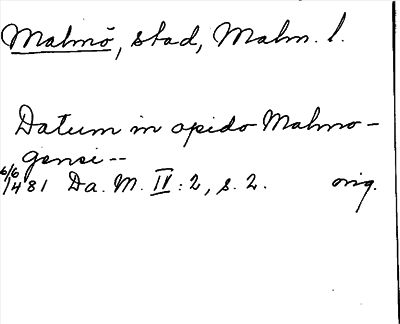 Malmö, stad, Malm. l.
Datum in opido Malmo-
gensi --
6/6 1481 Da. M. IV : 2, s. 2. orig.